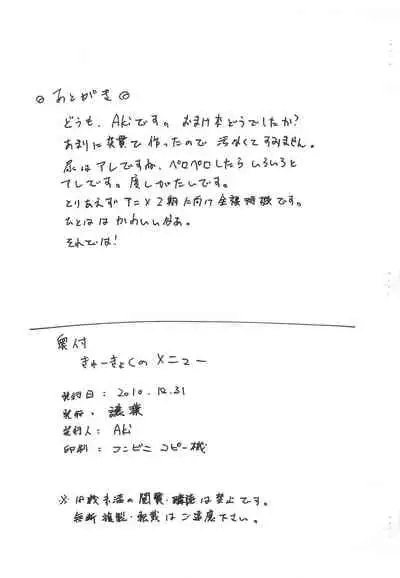 ◎ あとがき ◎
どうも、Akiです。おまけ本どうでしたか?
あまりに突貫で作ったので 汚なくてすみません。
尿はアレですが、ペロペロしたらいろいろと
アレです。度しがたしです。
とりあえずアニメ2期に向け全裸待機です。
ひとははかわいいなぁ。
それでは!
奥付
きゅーきょくのメニュー
発行日:2010.12.31
発行:
発行人:Aki
印刷:コンビニコピー機
※18歳未満の閲覧・購読は禁止です。
無断複製・転載はご遠慮下さい。